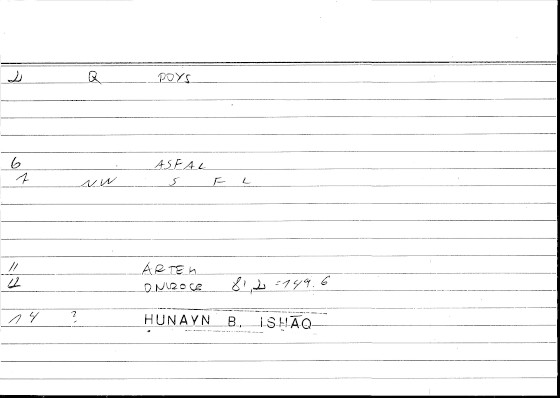 Q POYS
6 ASFAL
7 NW S F L
11 ARTEM
12 ONIROCE 8', =149.6
14 ? ḤUNAYN B. ISḤĀQ